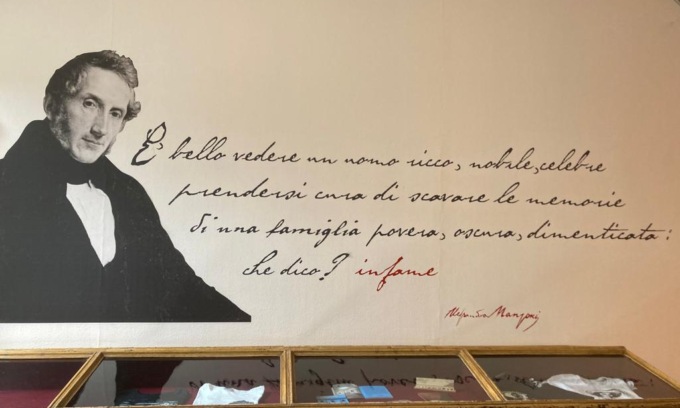 È bello vedere un uomo ricco, nobile, celebre
prendersi cura di scavare le memorie
di una famiglia povera, oscura, dimenticata:
che dico? infame
Alessandro Manzoni